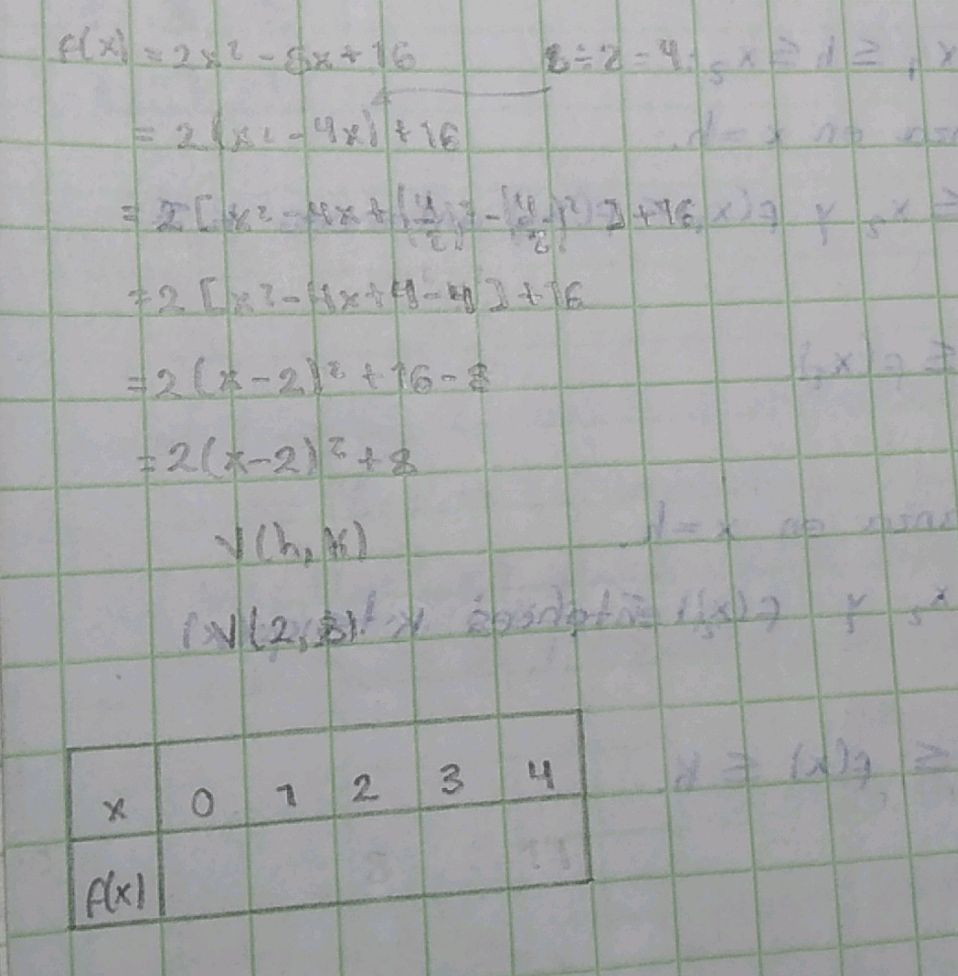 f(x) = 2x² - 8x + 16 8 ÷ 2 = 4
= 2(x² - 4x) + 16
= 2[x² - 4x + (4/2)² - (4/2)²] + 16
= 2[x² - 4x + 4 - 4] + 16
= 2(x - 2)² + 16 - 8
= 2(x - 2)² + 8
V(h, k)
V(2, 8)
x 0 1 2 3 4
f(x)